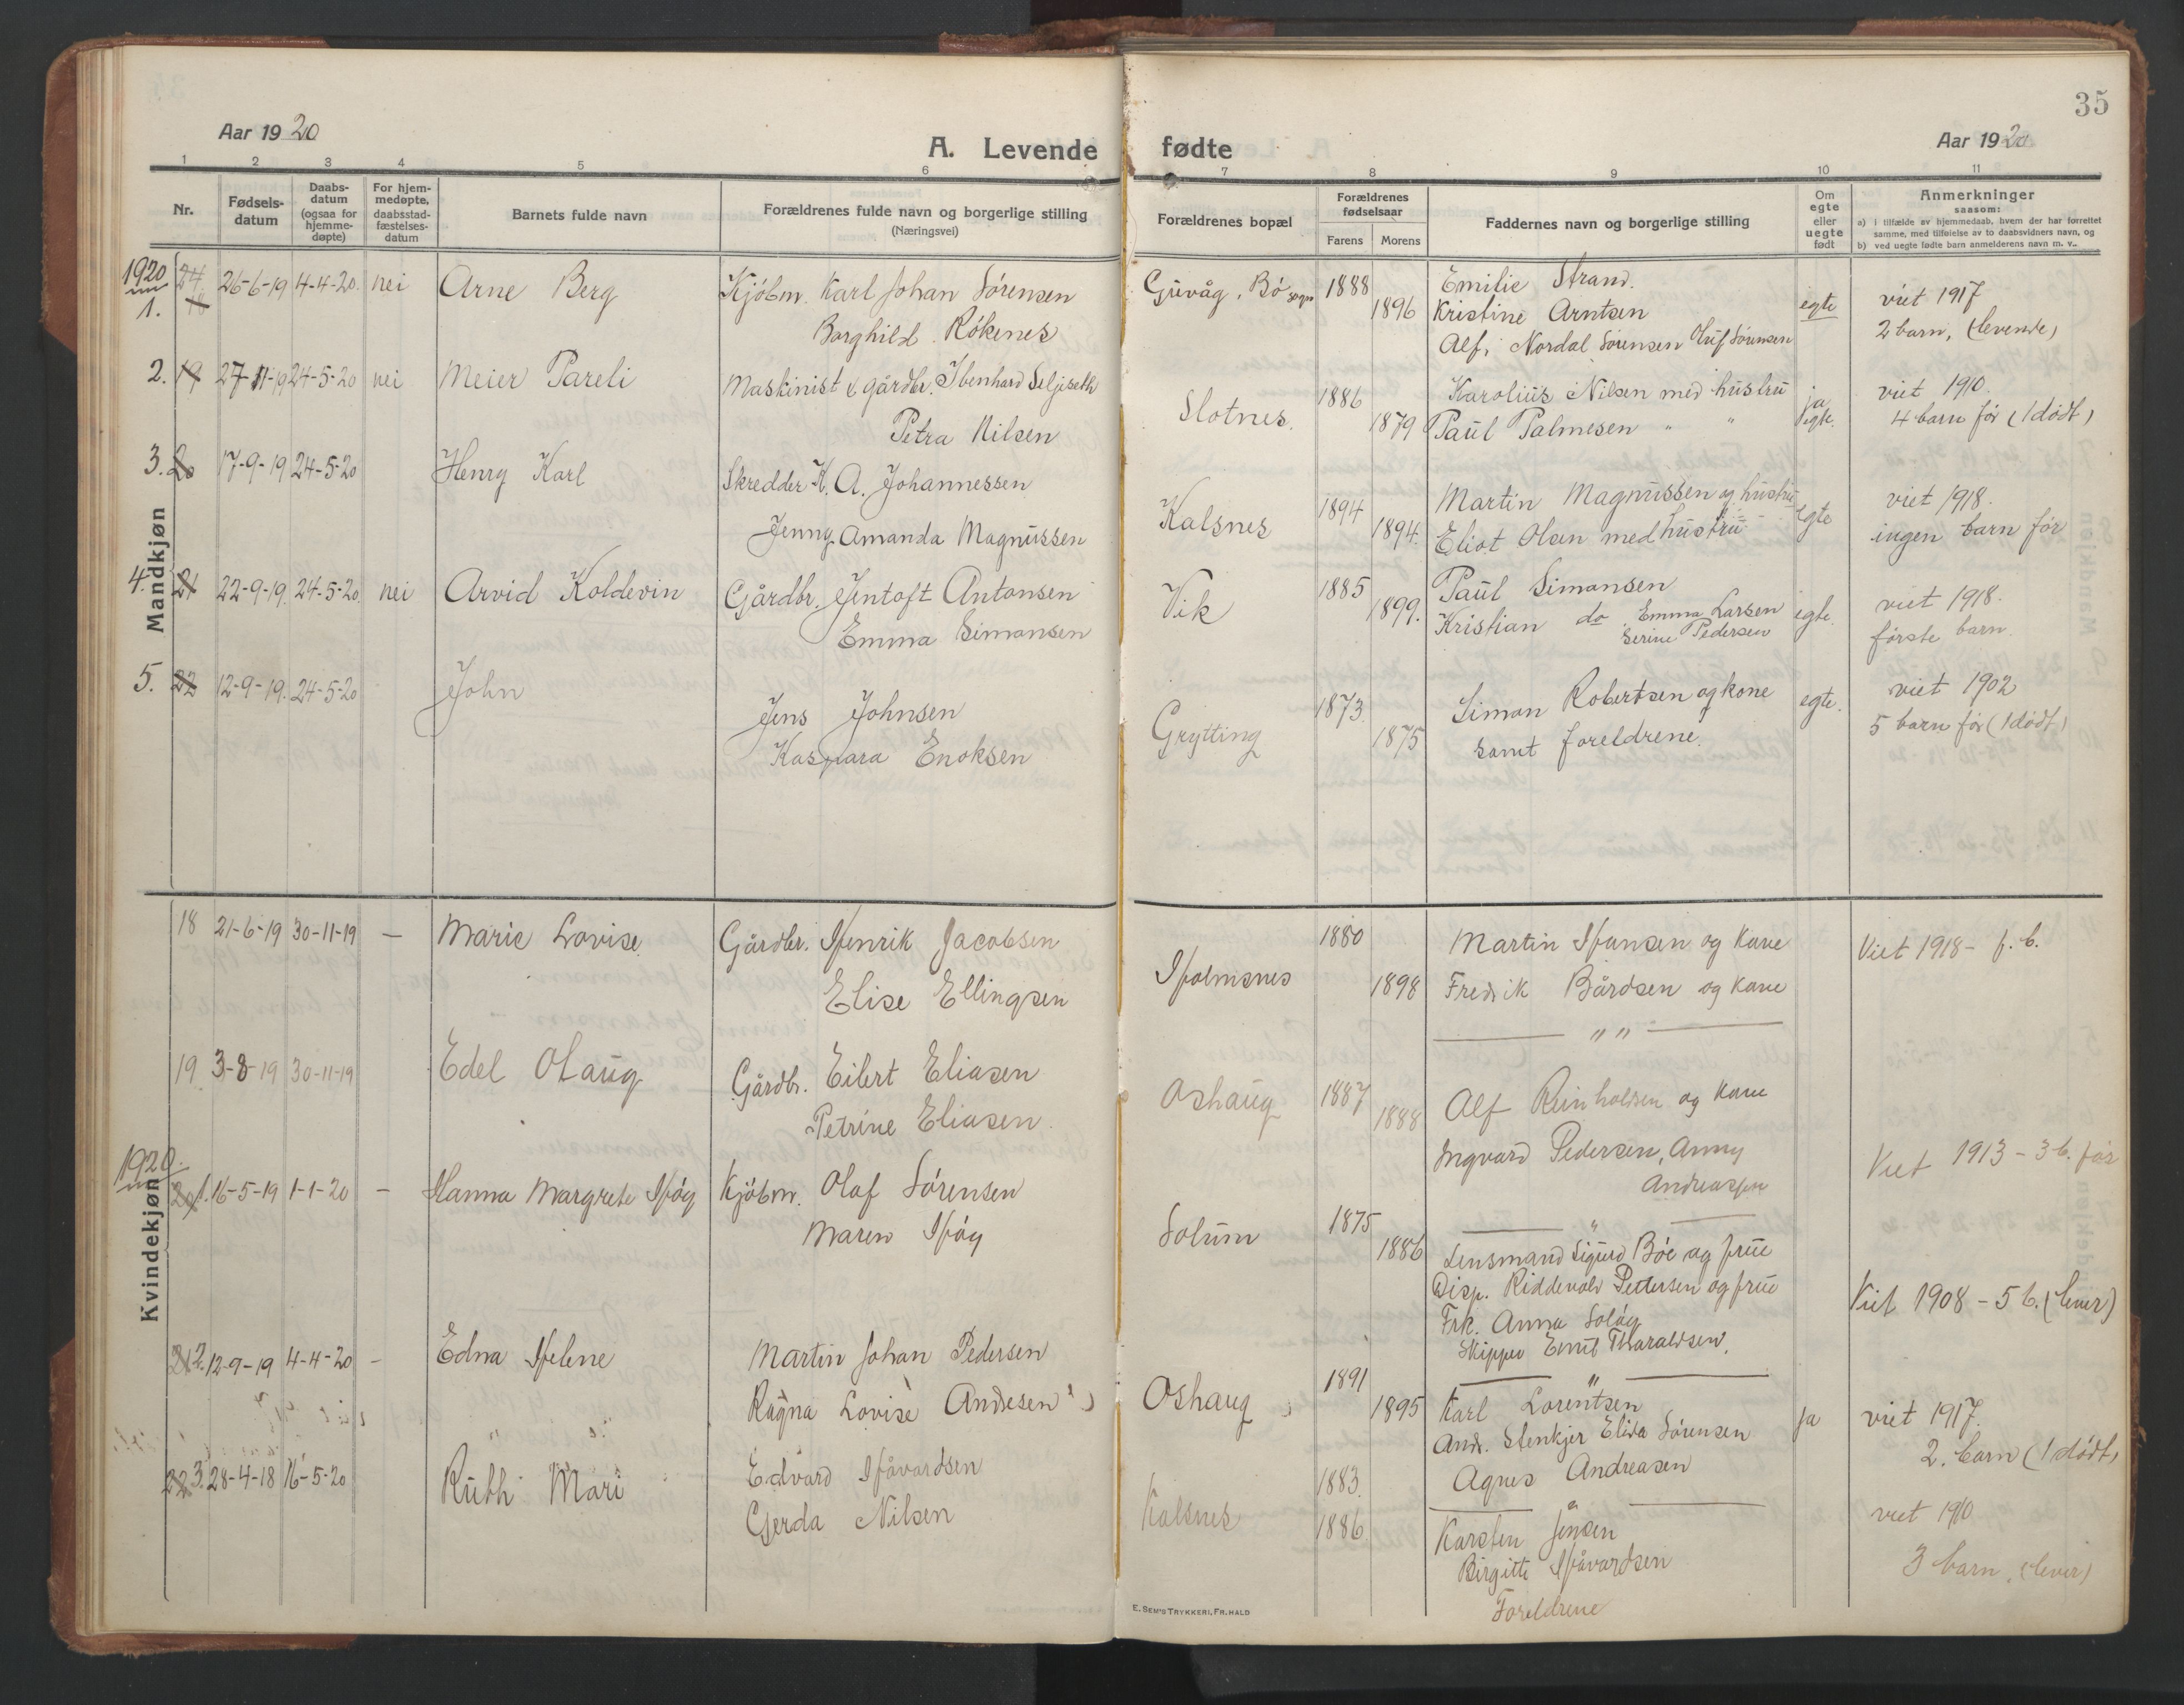 35
Aar 1920
A. Levende fødte
Aar 1920
1 2 3 4 5 6 7 8 9 10 11
Nr.
Fødsels-
datum
Daabs-
datum
(ogsaa for
hjemme-
døpte)
For hjem-
medøpte,
daabsstad-
fæstelses-
datum
Barnets fulde navn
Forældrenes fulde navn og borgerlige stilling
(Næringsvei)
Forældrenes bopæl
Forældrenes
fødselsaar
Farens Morens
Faddernes navn og borgerlige stilling
Om
egte
eller
uegte
født
Anmerkninger
saasom:
a) i tilfælde av hjemmedaab, hvem der har forrettet
samme, med tilføielse av to daabsvidners navn, og
b) ved uegte fødte barn anmelderens navn m. v..
Mandkjøn
1920
1. 18 26-6-19 4-4-20. nei Arne Berg
Kjöbm. Karl Johan Sörensen
Borghild Rökenes
Guvåg, Bö sogn
1888
1896
Emilie Strand.
Kristine Arntsen
Alf, Nordal Sörensen Oluf Sörensen
egte
viet 1917
2 barn, (levende)
2. 19 27-11-19 24-5-20 nei Meier Pareli
Maskinist & gårdbr. Ibenhard Seljeseth
Petra Nilsen
Slotnes.
1886
1879
Karolius Nilsen med hustru
Paul Palmesen " "
ja
egte.
viet 1910.
4 barn för (1 dödt)
3. 20 17-9-19 24-5-20 Henry Karl
Skredder K. A. Johannessen
Jenny Amanda Magnussen
Kalsnes
1894
1894.
Martin Magnussen og hustru
Eliot Olsen med hustru
egte
viet 1918.
ingen barn för
4. 21 22-9-19. 24-5-20 nei Arvid Koldevin
Gårdbr. Jentoft Antonsen
Emma Simonsen
Vik
1885
1899.
Paul Simonsen
Kristian do Emma Larsen
Serine Pedersen
egte.
viet 1918.
förste barn.
5. 22 12-9-19. 24-5-20 John
Jens Johnsen
Kaspara Enoksen
Grytting
1873
1875
Simon Robertsen og kone
samt foreldrene.
egte.
viet 1902
5 barn för (1 dödt)
Kvindekjøn
18 21-6-19 30-11-19 — Marie Lovise
Gårdbr. Henrik Jacobsen
Elise Ellingsen
Holmsnes
1880
1898
Martin Hansen og kone
Fredrik Bårdsen og kone
— " " —
Viet 1918 - f. b.
19 3-8-19 30-11-19 Edel Olaug
Gårdbr. Eilert Eliasen
Petrine Eliasen.
Oshaug
1887
1888
Alf Reinholdsen og kone
Ingvard Pedersen, Anny
Andreassen
Viet 1913 - 3 b. før
1920.
20 1. 16-5-19 1-1-20 - Hanna Margrete Høy
Kjöbm. Olaf Sörensen
Maren Høy
Solum
1875
1886
— " —
Lensmand Sigurd Böe og frue
Disp. Riddervold Pettersen og frue
Frk. Anna Soløy
Skipper Ernst Tharaldsen.
Viet 1908 - 5 b. (lever)
21 2. 12-9-19 4-4-20 - Edna Helene
Martin Johan Pedersen
Ragna Lovise Andresen
Oshaug
1891
1895
— " —
Karl Lorentsen
Andr. Stenkjer Elida Sörensen
Agnes Andreasen
ja
viet 1917.
2. barn (1 dödt)
22 3. 28-4-18 16-5-20 Ruth Mari
Edvard Håvardsen
Gerda Nilsen
Kalsnes
1883.
1886
— " —
Karsten Jensen
Birgitte Håvardsen
Foreldrene
viet 1910
3 barn. (lever)
E. SEM'S TRYKKERI, FR.HALD